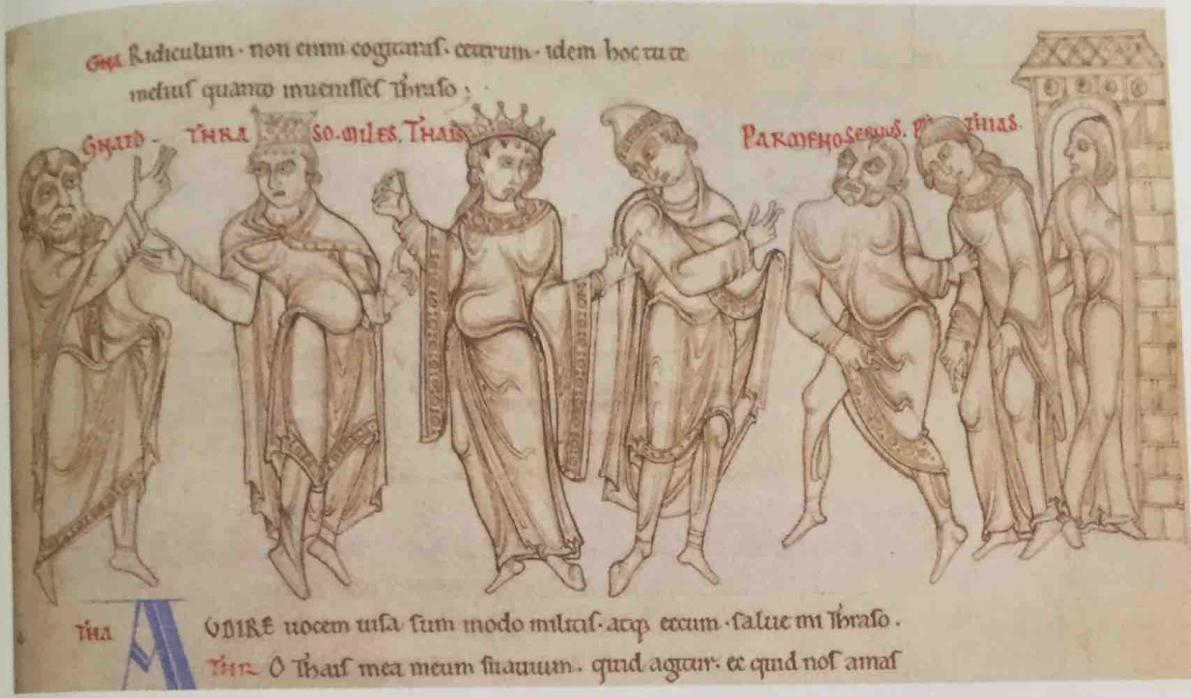 GNA Ridiculum · non enim cogitaras · ceterum · idem hoc tu te
melius quanto inuenisses Thraso ;
GNATO · THRASO · MILES · THAIS PARMENO SERUUS · PITHIAS ·
THA AUDIRE uocem uisa sum modo militis · atq; eccum · salue mi Thraso ·
THR O Thais mea meum suauium · quid agitur · ec quid nos amas